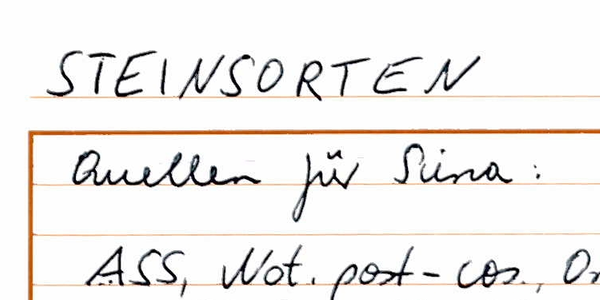 STEINSORTEN
Quellen für Sina:
ASS, Not. post-cos.,